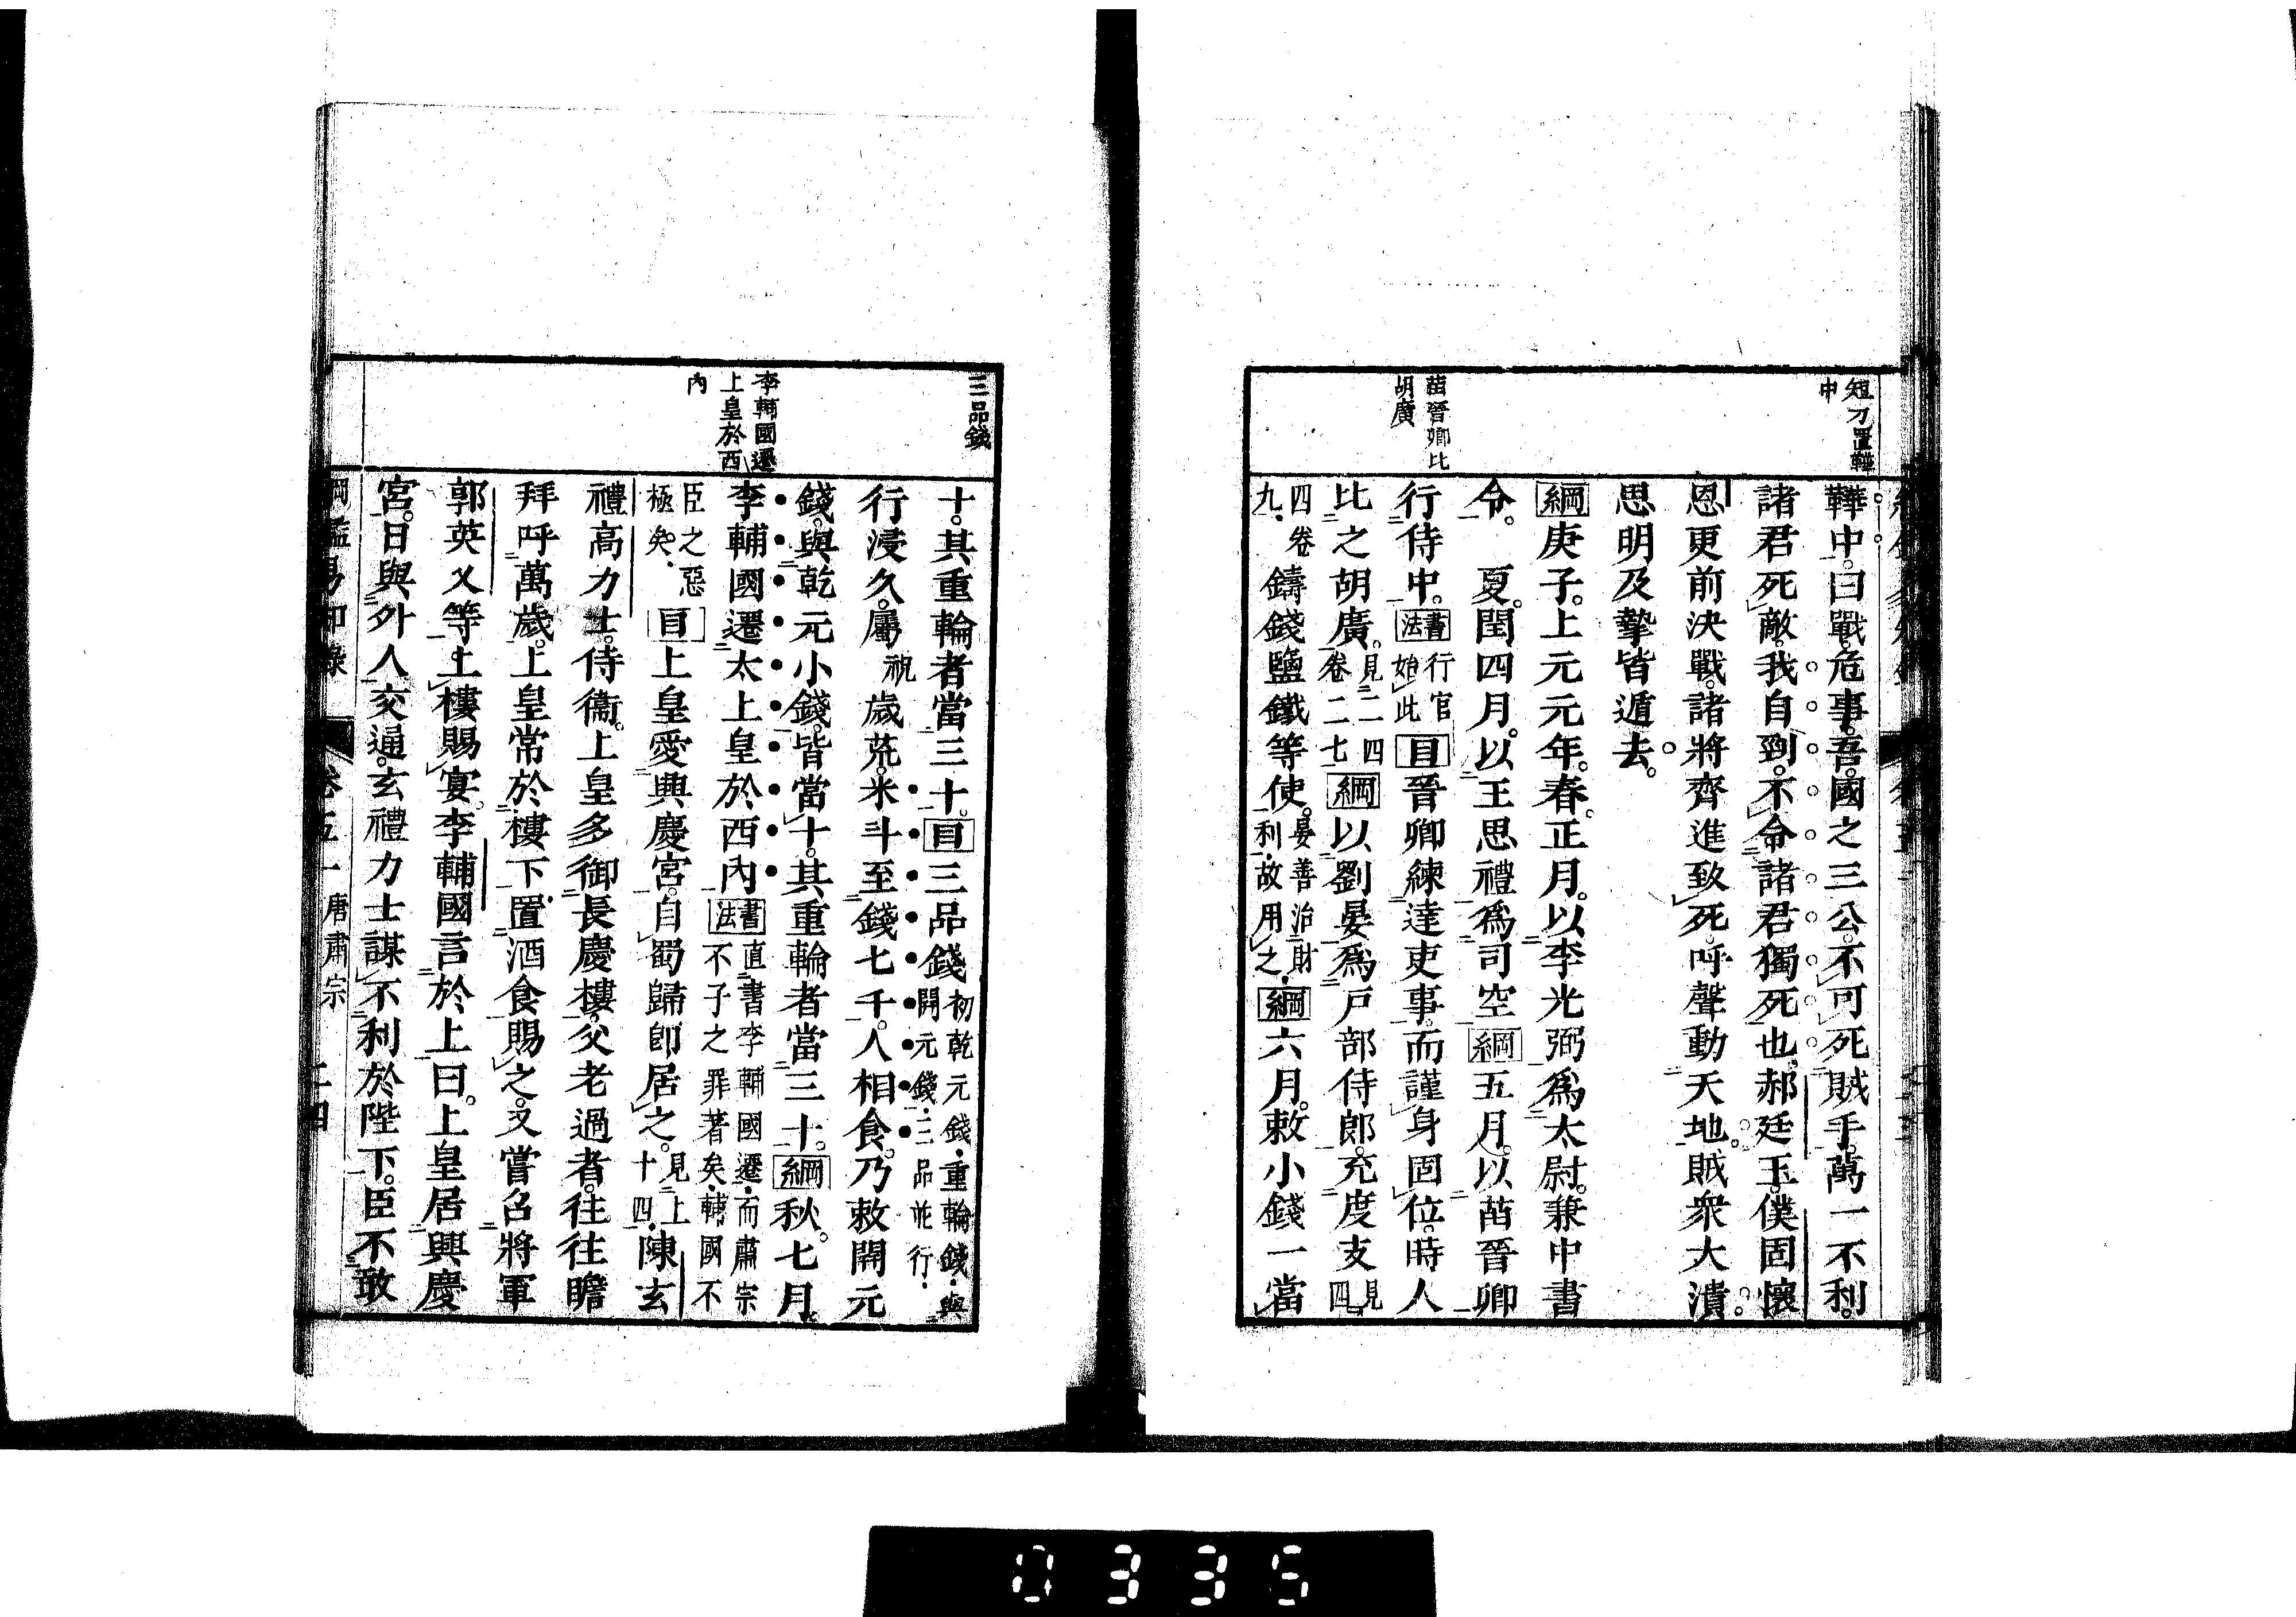 短刀置鞾
中
鞾中。曰戰。危事。吾。國之三公。不可死賊手。萬一不利。
諸君死敵。我自剄。不令諸君獨死也。郝廷玉。僕固懷
恩更前決戰。諸將齊進致死。呼聲動天地。賊衆大潰。
思明及摯皆遁去。
綱庚子。上元元年。春。正月。以李光弼爲太尉。兼中書
令。　夏。閏四月。以王思禮爲司空綱五月。以苗晉卿
苗晉卿比
胡廣
行侍中。書法行官始此目晉卿練達吏事。而謹身固位。時人
比之胡廣。見二四卷二七綱以劉晏爲戶部侍郎。充度支見四
四卷九.鑄錢鹽鐵等使。晏善治財利.故用之.綱六月。敕小錢一當
三品錢
十。其重輪者當三十。目三品錢初乾元錢.重輪錢.與開元錢.三品並行.
行浸久。屬祝歲荒。米斗至錢七千。人相食。乃敕開元
錢。與乾元小錢。皆當十。其重輪者當三十。綱秋。七月。
李輔國遷
上皇於西
內
李輔國遷太上皇於西內書法直書李輔國遷.而肅宗不子之罪著矣.輔國不
臣之惡極矣.目上皇愛興慶宮。自蜀歸卽居之。見上十四.陳玄
禮高力士。侍衞。上皇多御長慶樓。父老過者。往往瞻
拜呼萬歲。上皇常於樓下置酒食賜之。又嘗召將軍
郭英乂等。上樓賜宴。李輔國言於上曰。上皇居興慶
宮。日與外人交通。玄禮力士謀不利於陛下。臣不敢
綱鑑易知錄　卷五一　唐肅宗　二四